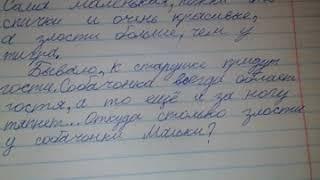 Сама маленькая, ножки что
спички и очень красивые,
а злости больше, чем у
тигра.
Бывало, к старушке придут
гости. Собачонка всегда облает
гостя, а то ещё и за ногу
тяпнет... Откуда столько злости
у собачонки Машки?